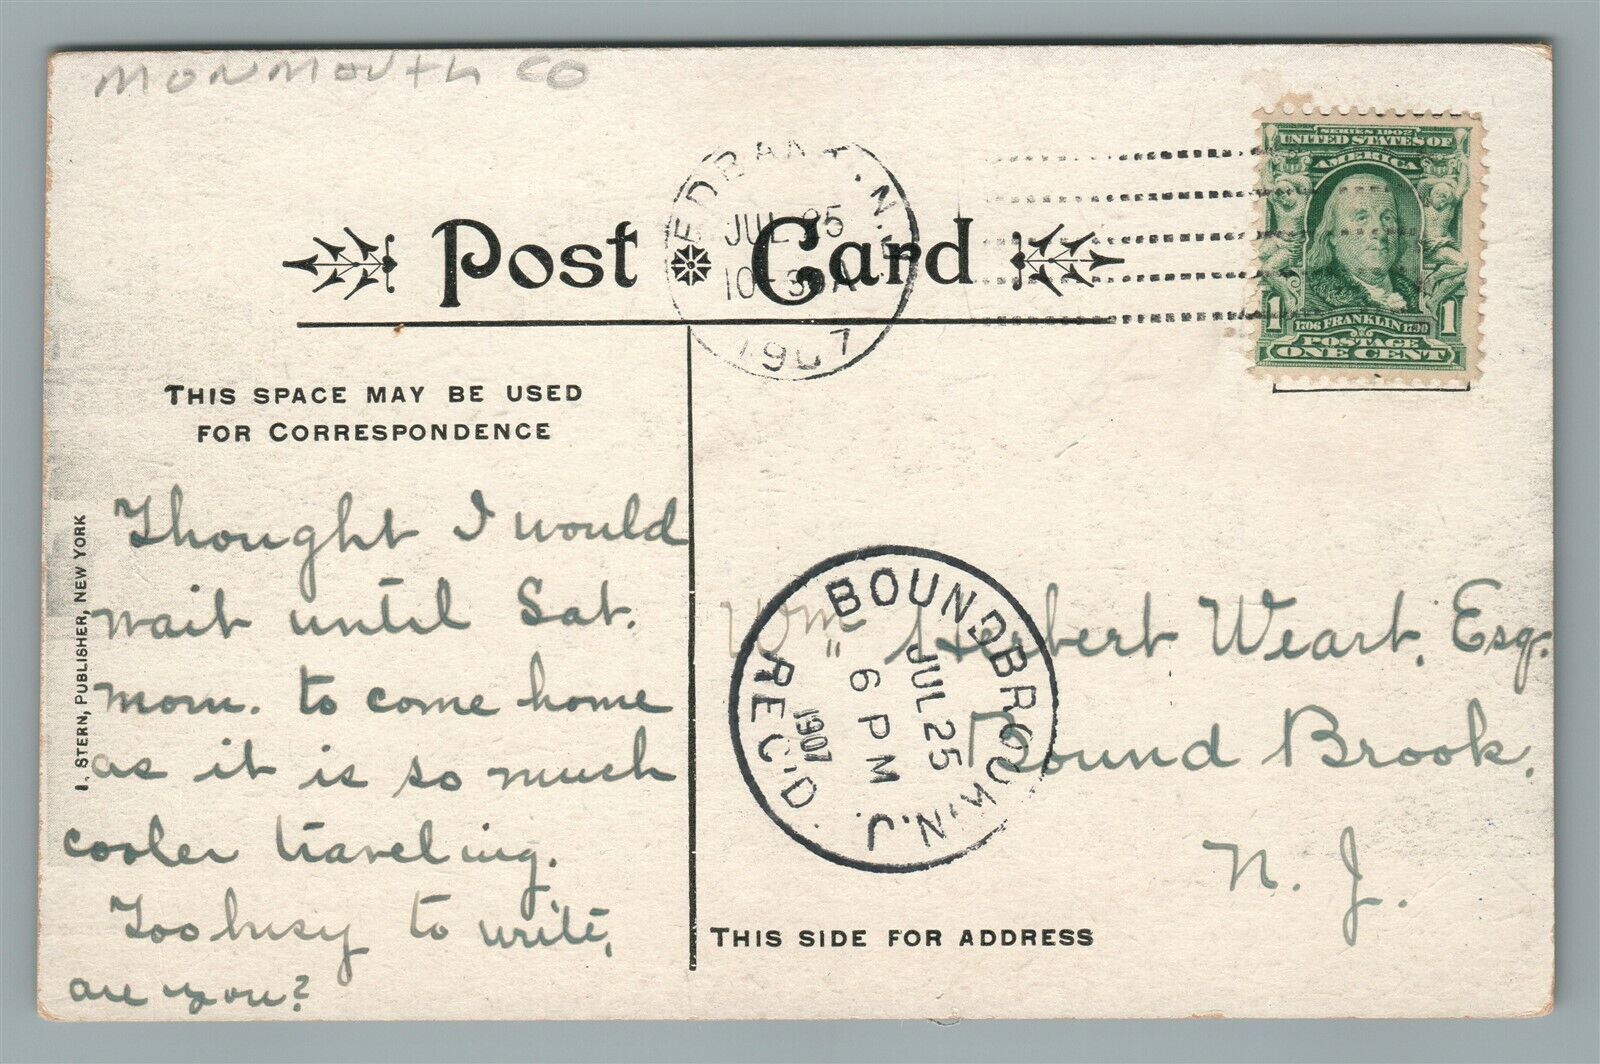 MONMOUTH CO
SERIES 1902
UNITED STATES OF
AMERICA
1 1706 FRANKLIN 1790 1
POSTAGE
ONE CENT
EDBANK, N.
JUL 25
10-30A
1907
Post Card
THIS SPACE MAY BE USED
FOR CORRESPONDENCE
Thought I would
wait until Sat.
morn. to come home
as it is so much
cooler traveling.
Too busy to write,
are you?
I. STERN, PUBLISHER, NEW YORK
BOUNDBROOK, N.J.
JUL 25
6 PM
1907
REC'D.
Wm Herbert Weart, Esq.
" Bound Brook,
N. J.
THIS SIDE FOR ADDRESS